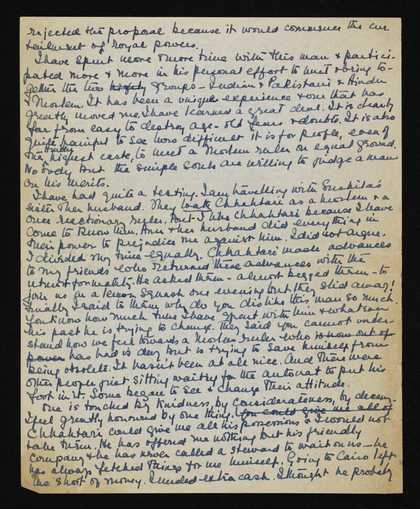 rejected this proposal because it would commence the cur
tailment of royal powers.
I have spent more & more time with this man & partici-
pated more & more in his personal effort to meet & bring to-
gether the two groups - Indian & Pakistani & Hindu
& Moslem. It has been a unique experience & one that has
greatly moved me. I have learned a great deal. It is clearly
far from easy to destroy age-old fears & doubts. It is also
quite painful to see how difficult it is for people, even of
the highest caste, to meet a Moslem ruler on equal ground.
Nobody but the simple souls are willing to judge a man
on his merits.
I have had quite a testing. I am travelling with
sister & her husband. They Chhahtari as a Moslem & a
once reactionary ruler. But I like Chhahtari because I have
come to know him. Ann & her husband did everything in
their power to prejudice me against him. I did not argue.
I divided my time equally. Chhahtari made advances
to my friends who returned these advances with the
utmost formality. He asked them - almost begged them - to
join us for a lemon squash one evening but they slid away.
Finally I said to them why do you dislike this man so much.
You know how much time I have spent with him & whatever
his past he is trying to change. They said you cannot under-
stand how we feel towards a Moslem ruler who is now out of
power has had his day but is trying to save himself from
being obsolete. It hasn't been at all nice. And there were
other people just sitting waiting for the autocrat to put his
foot in it. Some began to see & change their attitude.
One is touched by kindness, by considerateness, by decency.
I feel greatly honoured by one thing. You could give me all of
Chhahtari could give me all his possessions & I would not
take them. He has offered me nothing but his friendly
company & he has never called a steward to wait on us - he
has always fetched things for me himself. Going to Cairo left
me short of money. I needed extra cash. I thought he probably